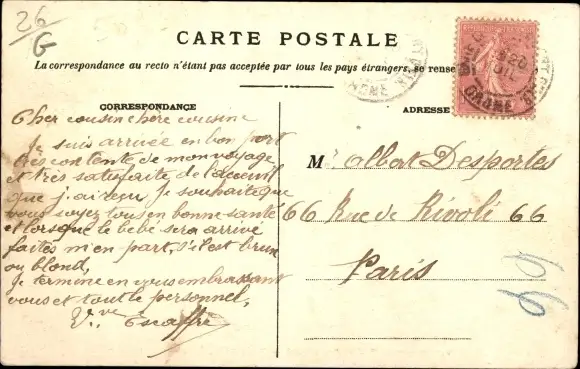 26
G
CARTE POSTALE
La correspondance au recto n'étant pas acceptée par tous les pays étrangers, se rense
CORRESPONDANCE
ADRESSE
Cher cousin chère cousine
Je suis arrivée en bon port
très contente de mon voyage
et très satisfaite de l'acceuil
que j'ai reçu Je souhaite que
vous soyez tous en bonne santé
et lorsque le bebe sera arrivé
faites m'en part, s'il est brun
ou blond,
Je termine en vous embrassant
vous et tout le personnel,
Vve Escaffre
M albert Desportes
66 Rue de Rivoli 66
Paris
DROME